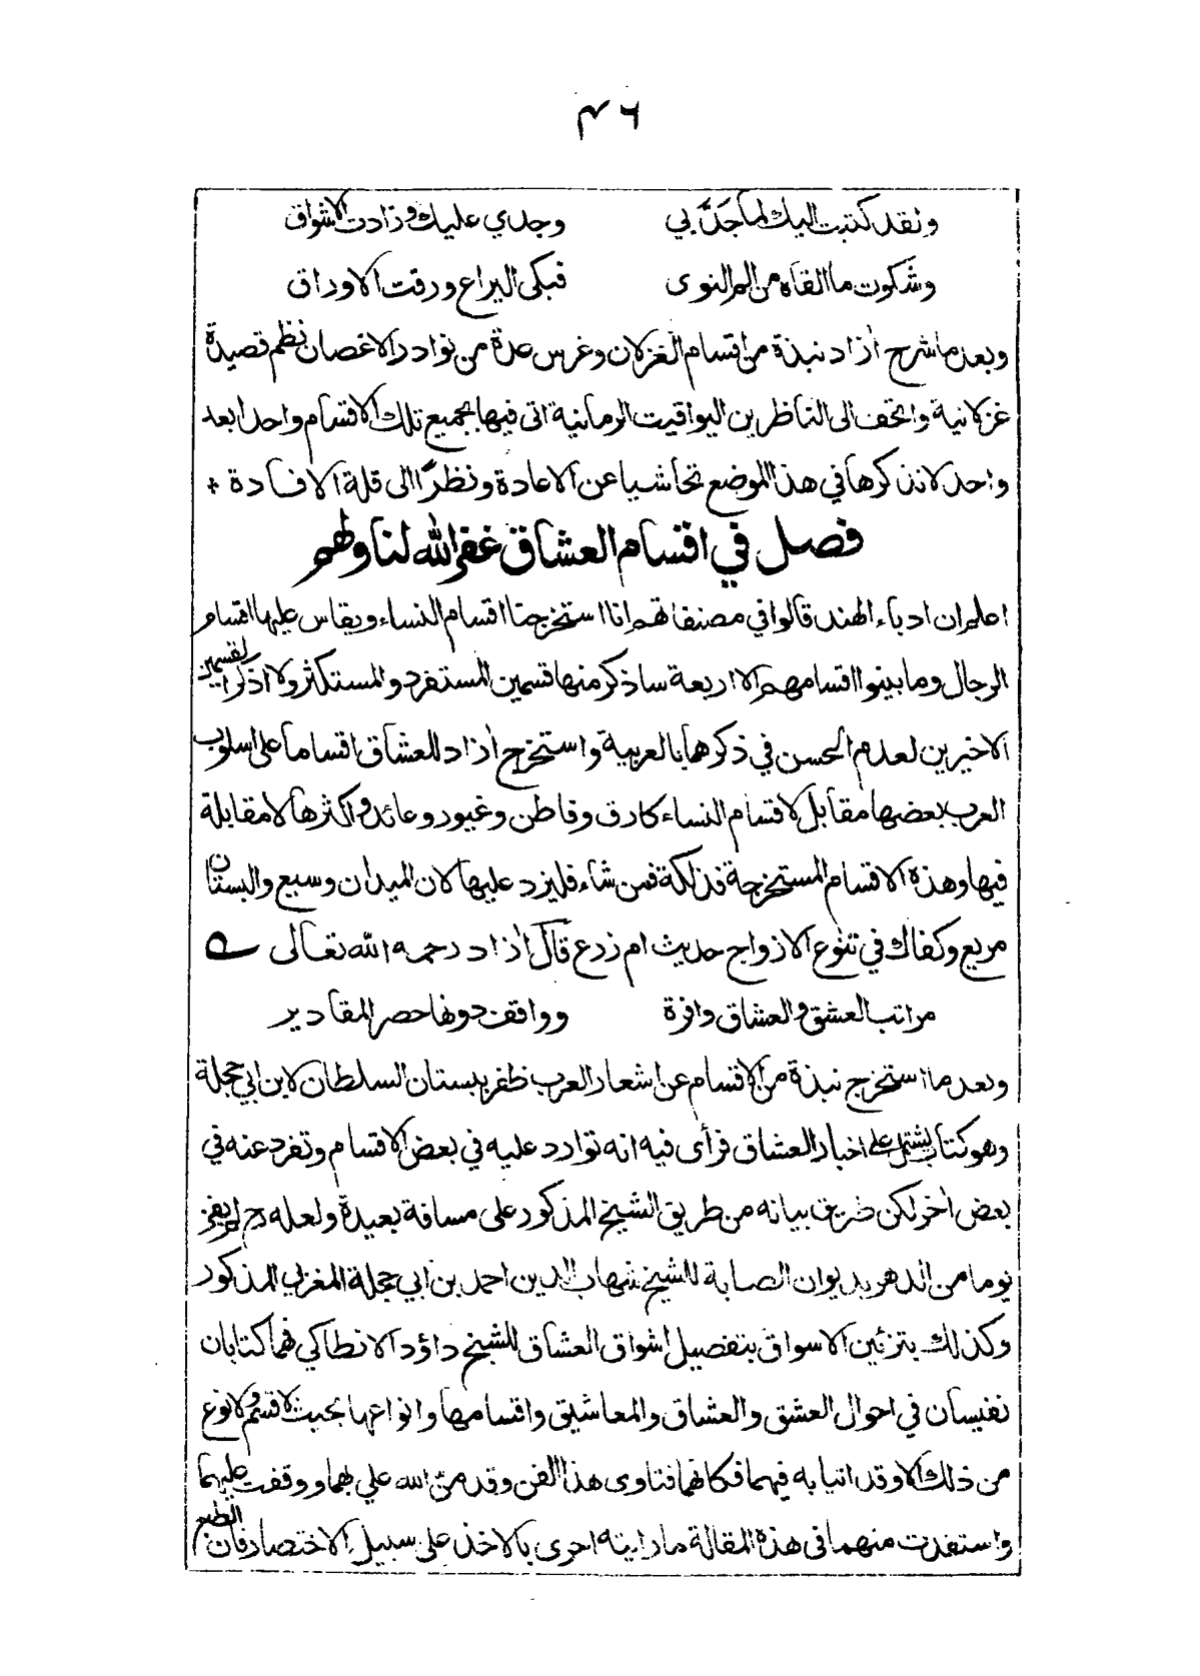 ٤٦
ولقد كتبت اليك لما جَدَّ بي وجدي عليك وزادت الاشواق
وشكوت ما القاه من الم النوى فبكى اليراع ورقت الاوراق
وبعد ما شرح اٰزاد نبذة من اقسام الغزلان وغرس عدة من نوادر الاغصان نظم قصيدة
غزلانية واتحف الى الناظرين اليواقيت الرمانية اتى فيها بجميع تلك الاقسام واحدا بعد
واحد لانذكرها في هذا الموضع تحاشيا عن الاعادة ونظرًا الى قلة الافادة +
فصل في اقسام العشاق غفر الله لنا ولهم
اعلم ان ادباء الهند قالوا في مصنفاتهم انا استخرجنا اقسام النساء ويقاس عليها اقسام
الرجال وما بينوا اقسامهم الا اربعة ساذكر منها قسمين المستفرد والمستكثر ولا اذكر القسمين
الاخيرين لعدم الحسن في ذكرهما بالعربية واستخرج اٰزاد للعشاق اقساما على اسلوب
العرب بعضها مقابل لاقسام النساء كارق وفاطن وغيور وعائد واكثرها لا مقابلة
فيها وهذه الاقسام المستخرجة فذلكة فمن شاء فليزد عليها لان الميدان وسيع والبستان
مريع وكفاك في تنوع الازواج حديث ام زرع قال اٰزاد رحمه الله تعالى ه
مراتب العشق والعشاق وافرة وواقف دونها حصر المقادير
وبعد ما استخرج نبذة من الاقسام عن اشعار العرب ظفر ببستان السلطان لابن ابي حجلة
وهو كتاب يشتمل على اخبار العشاق فرأى فيه انه توارد عليه في بعض الاقسام وتفرد عنه في
بعض اٰخر لكن طريق بيانه من طريق الشيخ المذكور على مسافة بعيدة ولعله رح لم يفز
يوما من الدهر بديوان الصبابة للشيخ شهاب الدين احمد بن ابي حجلة المغربي المذكور
وكذلك بتزئين الاسواق بتفصيل اشواق العشاق للشيخ داؤد الانطاكي فهما كتابان
نفيسان في احوال العشق والعشاق والمعاشيق واقسامها وانواعها بحيث لا قسم ولا نوع
من ذلك الا وقد اتيا به فيهما فكانهما فتاوى هذا الفن وقد منّ الله علي بهما ووقفت عليهما
واستفدت منهما في هذه المقالة ما رايته احرى بالاخذ على سبيل الاختصار فان الطبع